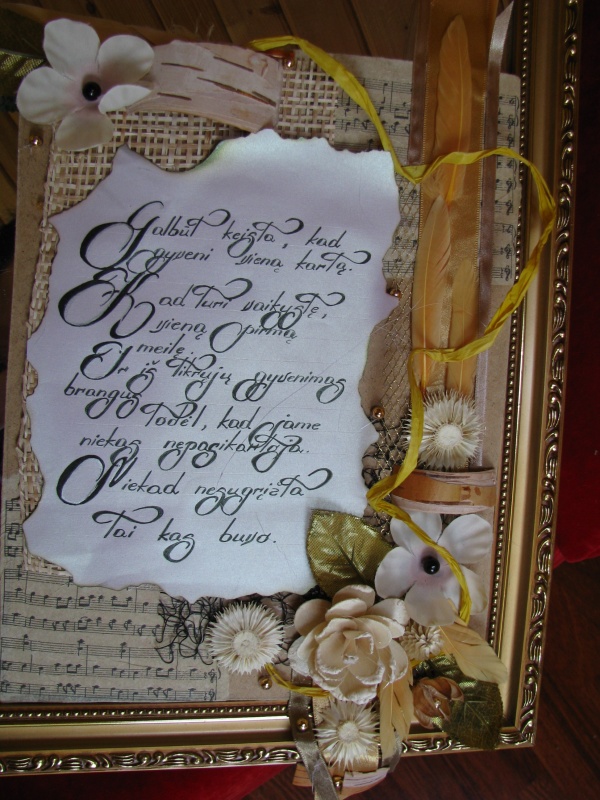 Galbūt keista, kad
gyveni vieną kartą.
Kad turi vaikystę,
vieną pirmą
meilę.
Ir iš tikrųjų gyvenimas
brangus
Todėl, kad jame
niekas nepasikartoja..
Niekad nesugrįžta
Tai kas buvo.